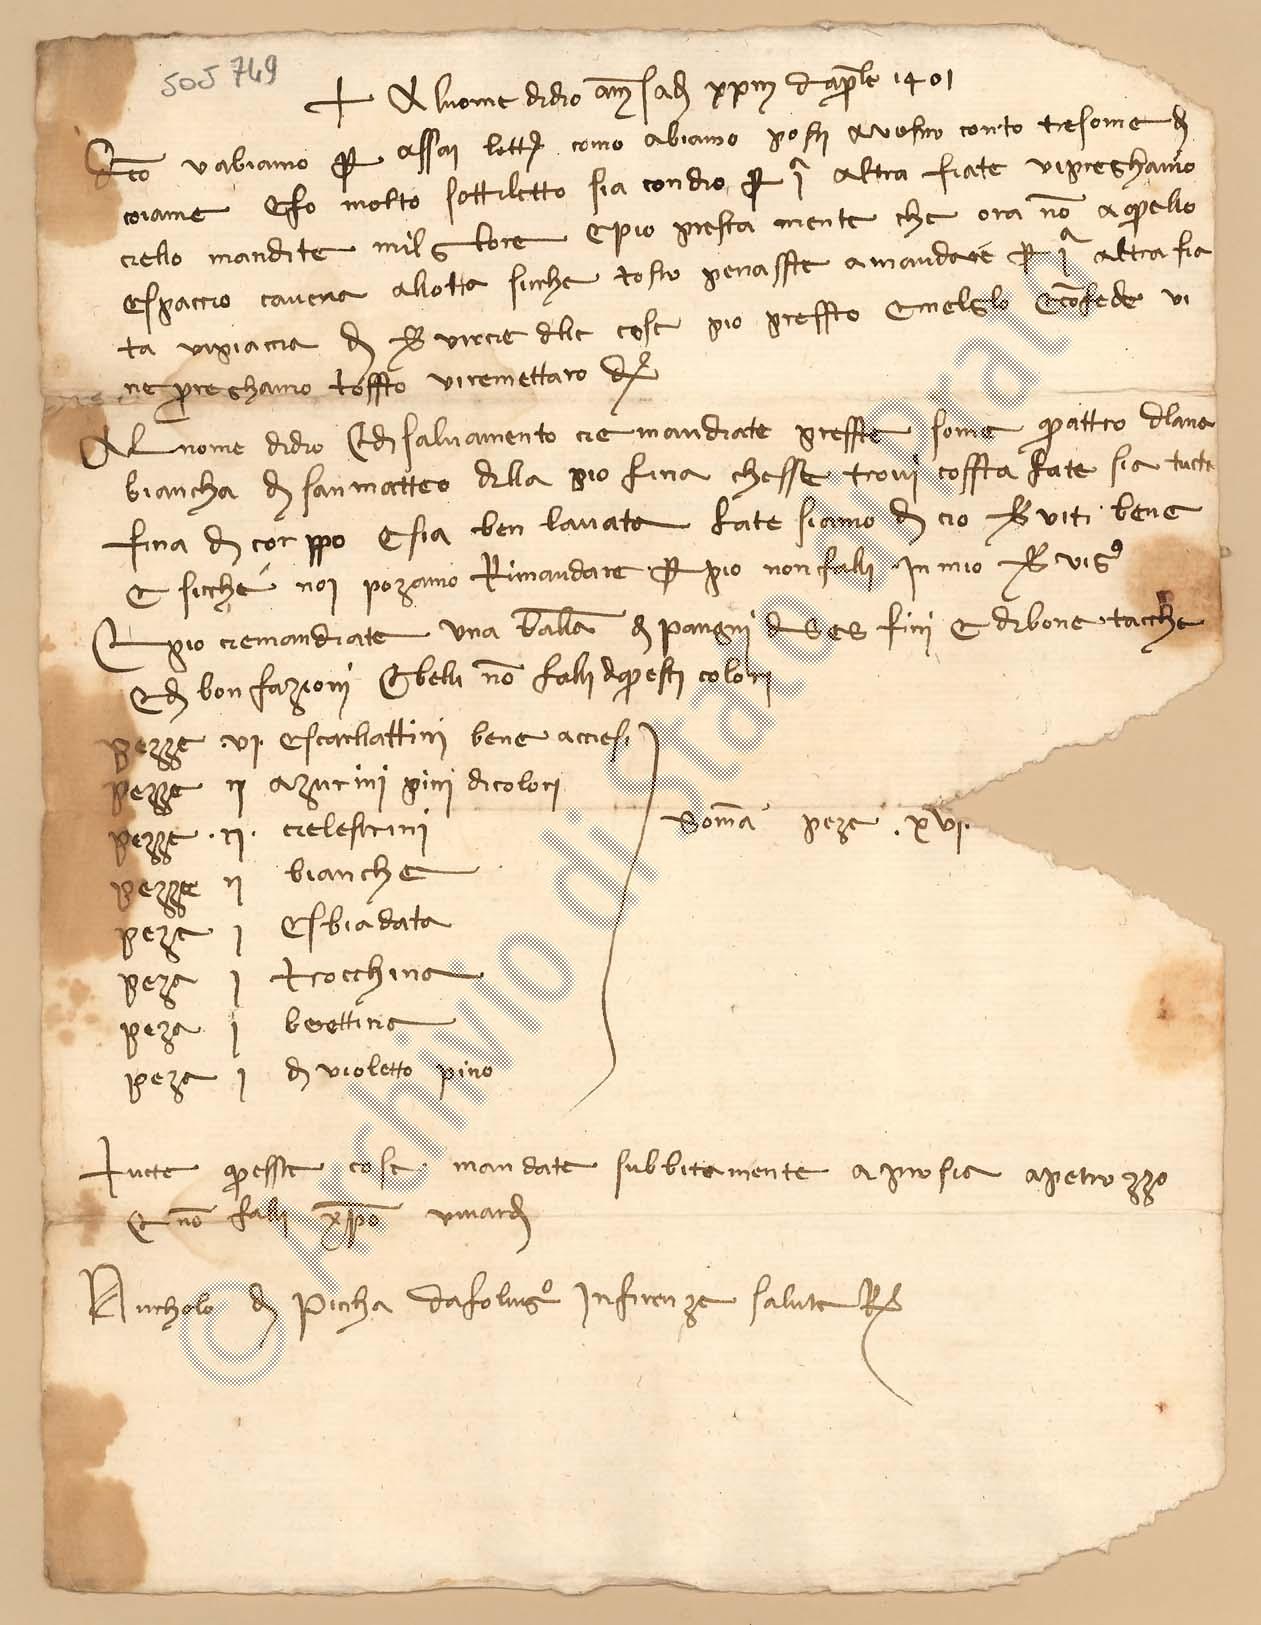 505 749
+ Al nome didio am̅ sad xxiii d ap̅le 1401
Deto vabiamo p assai lett̅e como abiamo posti a vostro conto tre some d
coiame Efo molto sottiletto sia condio p iª altra fiate vipreghamo
ciello mandite miglore Epio presta mente che ora no̅ a quello
espaccio caveva allotta sicche tosto penasste amandare p iª altra fia
ta vipiaccia d servircie dele cose pio pressto Emelglo Eco̅fede vi
ne preghamo tossto viremettaro d
Al nome didio Edi salvamento ciemandiate presste some quattro dlana
biancha di sanmatteo della pio fina chesse trovi cossta fate sia tucta
fina d corppo Esia ben lavata fate siamo d cio serviti bene
E sicche noi pozamo Rimandare p pio non falli In mio servisº
E pio ciemandiate una balla d pangni fini E dibone tacche
Ed bon fazioni Ebelli no̅ falli dquesti colori
pezze .vi. Escarllattini bene acciesi
pezze ii azurini pini dicolori
pezze .ii. cielestrini
pezze ii bianche
peza i Esbiadata
peza i trocchina
peza i berettina
peza i d violetto pino
Som̅a peze .xvi.
tucte quesste cose mandate subbitamente aproscia apetrozzo
E no̅ falli xp̅o vi guardi
Niccholo d Piccha dafolingº Infirenze salute
© Archivio di Stato di Prato